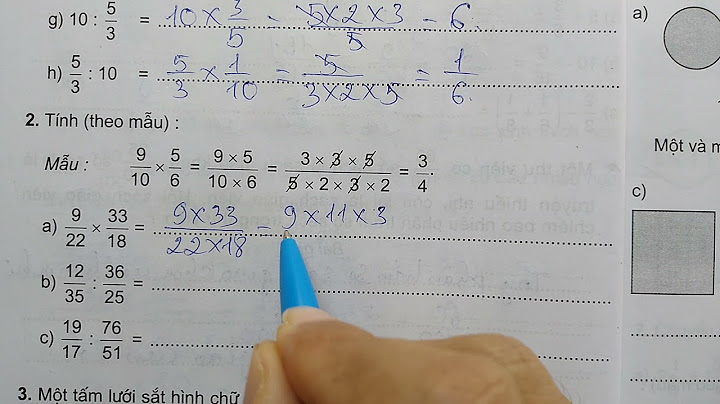 g) 10 : 5/3 = 10 × 3/5 = 5×2×3/5 = 6.
h) 5/3 : 10 = 5/3 × 1/10 = 5/3×2×5 = 1/6.
2. Tính (theo mẫu) :
Mẫu : 9/10 × 5/6 = 9 × 5/10 × 6 = 3 × 3 × 5/5 × 2 × 3 × 2 = 3/4.
a) 9/22 × 33/18 = 9×33/22×18 = 9×11×3
b) 12/35 : 36/25 =
c) 19/17 : 76/51 =
3. Một tấm lưới sắt hình chữ
a)
Một và m
c)